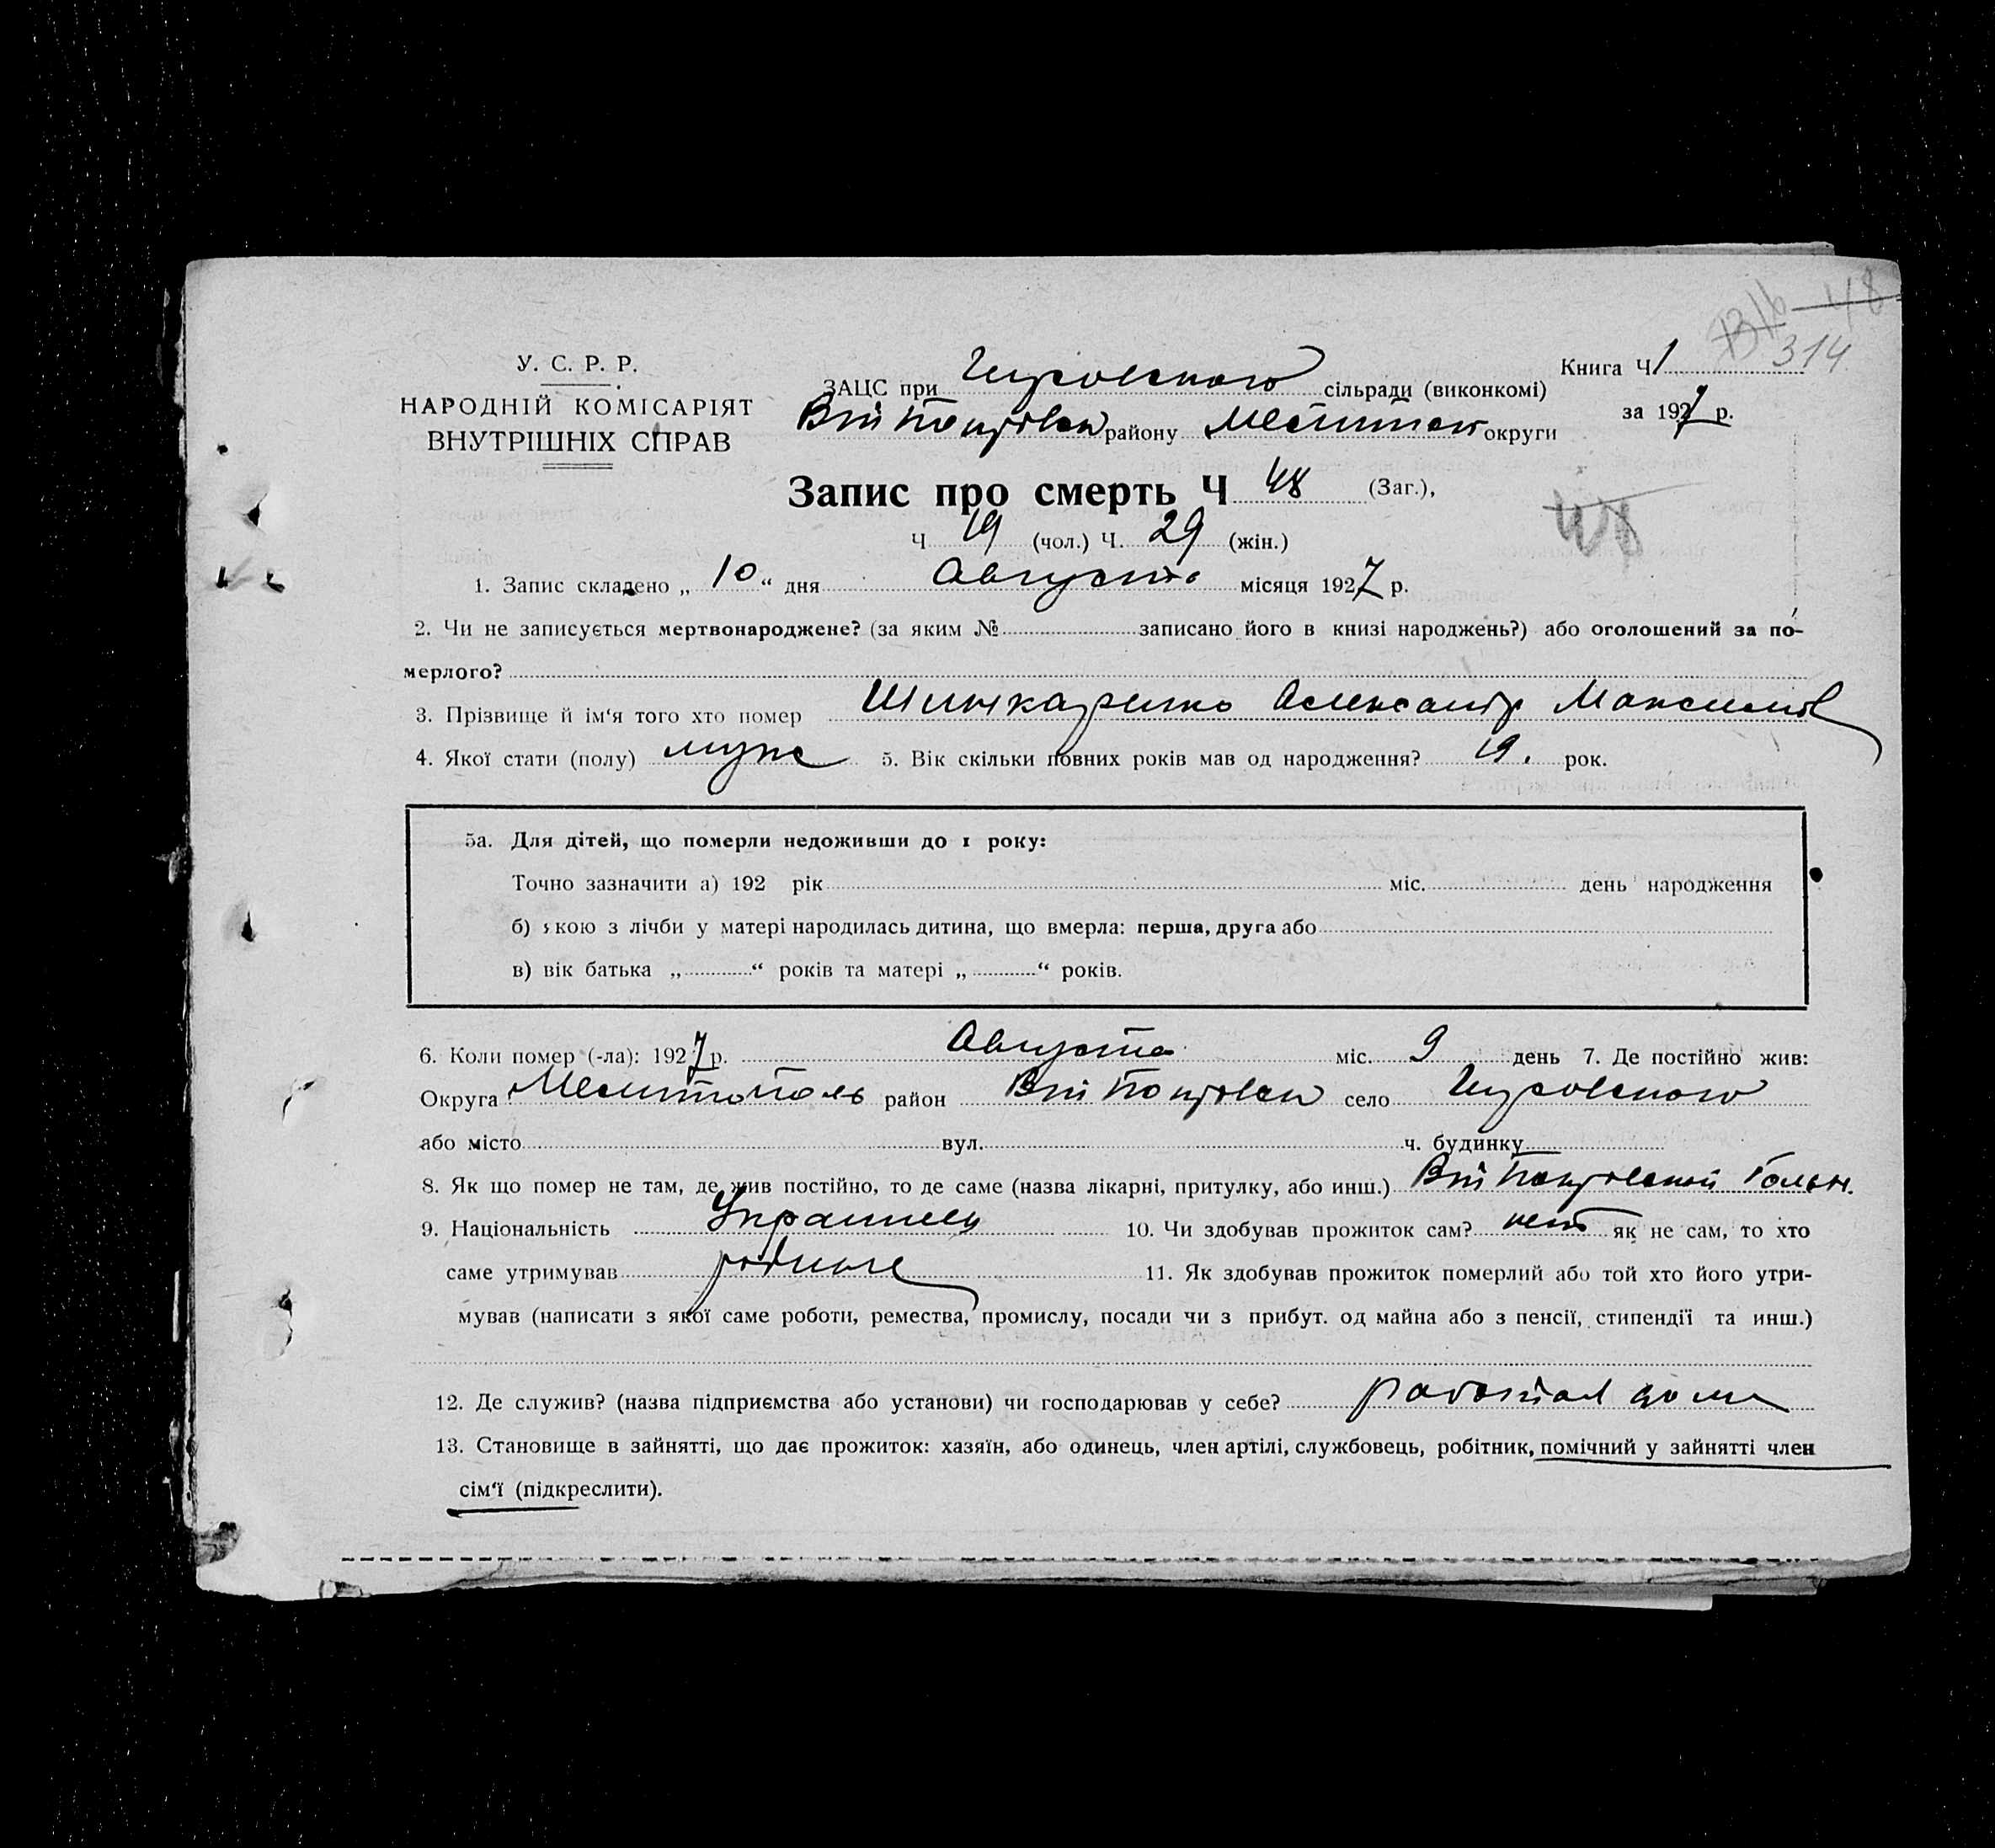 314
У. С. Р. Р.
НАРОДНІЙ КОМІСАРІЯТ
ВНУТРІШНІХ СПРАВ
ЗАЦС при сільради (виконкомі)
району Мелитоп округи
Книга Ч 1
за 1927 р.
Запис про смерть Ч 48 (Заг.),
Ч 19 (чол.) Ч. 29 (жін.)
48
1. Запис складено „ 10 “ дня Августа місяця 1927 р.
2. Чи не записується мертвонароджене? (за яким № записано його в книзі народжень?) або оголошений за по-
мерлого?
3. Прізвище й ім‘я того хто помер Шинкаренко Александр Максимов
4. Якої стати (полу) муже 5. Вік скільки повних років мав од народження? 19. рок.
5а. Для дітей, що померли недоживши до 1 року:
Точно зазначити а) 192 рік міс. день народження
б) якою з лічби у матері народилась дитина, що вмерла: перша, друга або
в) вік батька „ “ років та матері „ “ років.
6. Коли помер (-ла): 1927 р. Августа міс. 9 день 7. Де постійно жив:
Округа Мелитополь район село
або місто вул. ч. будинку
8. Як що помер не там, де жив постійно, то де саме (назва лікарні, притулку, або инш.)
9. Національність Украинец 10. Чи здобував прожиток сам? нет як не сам, то хто
саме утримував родные 11. Як здобував прожиток померлий або той хто його утри-
мував (написати з якої саме роботи, ремества, промислу, посади чи з прибут. од майна або з пенсії, стипендії та инш.)
12. Де служив? (назва підприємства або установи) чи господарював у себе? работал дома
13. Становище в зайнятті, що дає прожиток: хазяїн, або одинець, член артілі, службовець, робітник, помічний у зайнятті член
сім‘ї (підкреслити).